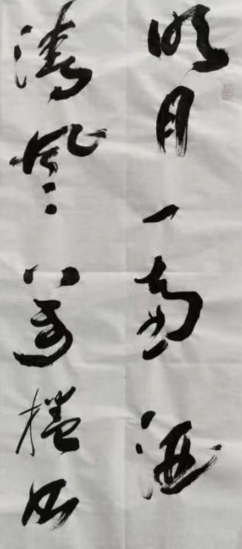 明月一壺酒
清風萬